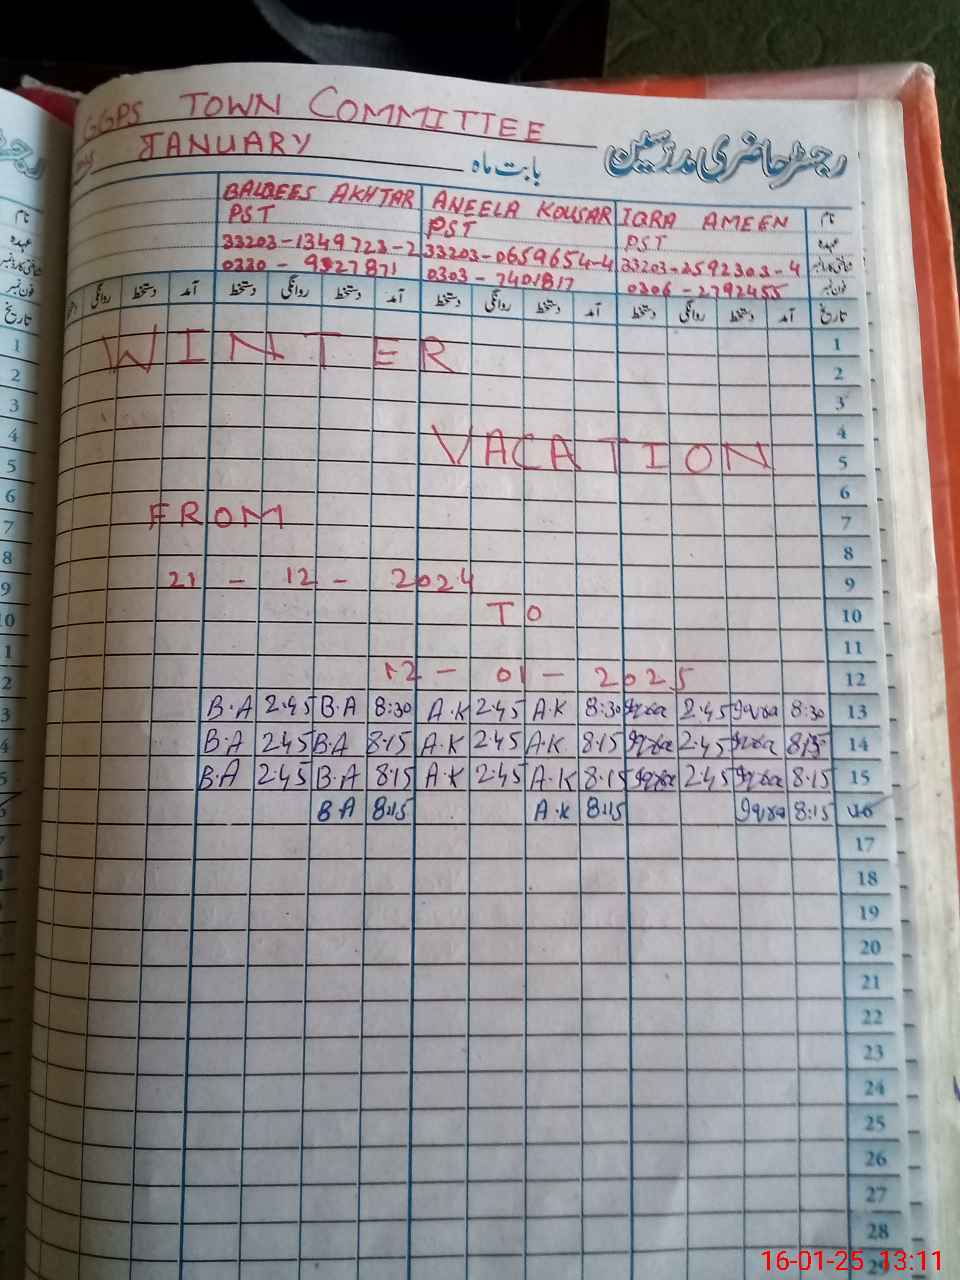 GGPS TOWN COMMITTEE
رجسٹر حاضری مدرسین
بابت ماہ JANUARY
BALQEES AKHTAR ANEELA KOUSAR IQRA AMEEN نام
PST PST PST عہدہ
33203-1349723-2 33203-0659654-4 33203-2592303-4 شناختی کارڈ نمبر
0303-7401817 0306-2792455 فون نمبر
روانگی دستخط آمد دستخط روانگی دستخط آمد دستخط روانگی دستخط آمد دستخط روانگی دستخط آمد تاریخ
WINTER 1
2
3
VACATION 4
5
6
FROM 7
8
21 - 12 - 2024 9
TO 10
11
12 - 01 - 2025 12
B.A 2.45 B.A 8:30 A.K 2.45 A.K 8:30 Iqra 2.45 Iqra 8:30 13
B.A 2.45 B.A 8.15 A.K 2.45 A.K 8.15 Iqra 2.45 Iqra 8.15 14
B.A 2.45 B.A 8.15 A.K 2.45 A.K 8.15 Iqra 2.45 Iqra 8.15 15
BA 8:15 A.K 8:15 Iqra 8:15 16
17
18
19
20
21
22
23
24
25
26
27
28
29
16-01-25 13:11